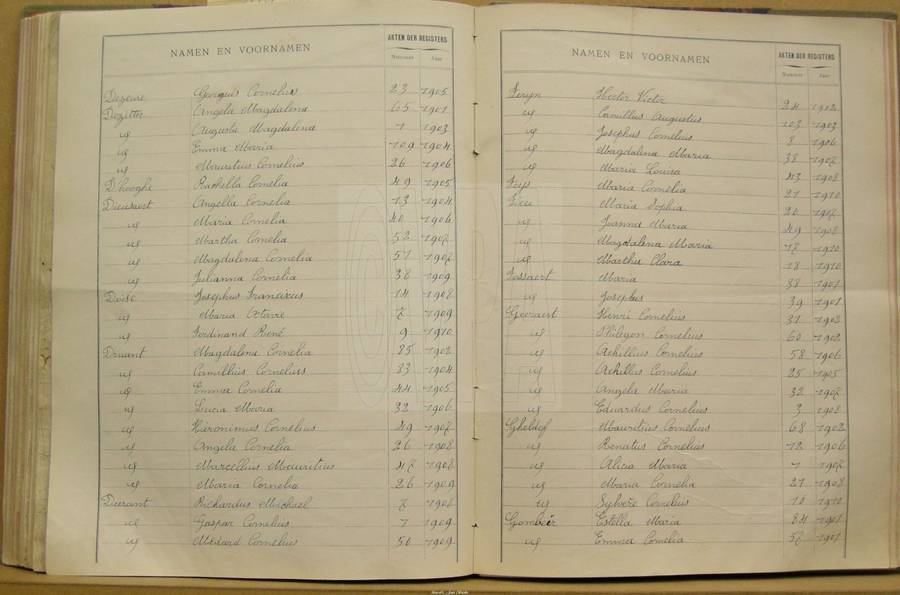 NAMEN EN VOORNAMEN AKTEN DER REGISTERS
Nummer Jaar
Dezeure Georgius Cornelius 23 1905
Dezitter Angela Magdalena 65 1901
id Augusta Magdalena 1 1903
id Emma Maria 109 1904
id Mauritius Cornelius 26 1906
D'hooghe Rachella Cornelia 49 1905
Dieusaert Angella Cornelia 13 1904
id Maria Cornelia 40 1906
id Martha Cornelia 52 1907
id Magdalena Cornelia 57 1907
id Julianna Cornelia 38 1909
Doise Josephus Franciscus 14 1908
id Maria Octavie 7 1909
id Ferdinand René 9 1910
Druant Magdalena Cornelia 85 1902
id Camillius Cornelius 83 1904
id Emma Cornelia 44 1905
id Lucia Maria 32 1906
id Hieronimus Cornelius 49 1907
id Angela Cornelia 26 1908
id Marcellius Mauritius 47 1908
id Maria Cornelia 26 1909
Durant Richardus Michael 7 1908
id Gaspar Cornelius 7 1909
id Medard Cornelius 50 1909
NAMEN EN VOORNAMEN AKTEN DER REGISTERS
Nummer Jaar
Feryn Hector Victor 24 1902
id Camillus Augustus 103 1903
id Josephus Cornelius 8 1906
id Magdalena Maria 38 1907
id Maria Louisa 43 1908
Maria Cornelia 21 1910
Maria Sophia 20 1907
id Joanna Maria 49 1908
id Magdalena Maria 17 1910
id Martha Clara 18 1910
Fossaert Maria 38 1901
id Josephus 39 1901
Geeraert Henri Cornelius 31 1902
id Philegon Cornelius 60 1902
id Achillius Cornelius 58 1906
id Achilles Cornelius 25 1905
id Angela Maria 32 1907
id Eduardus Cornelius 3 1908
Gheldof Mauritius Cornelius 68 1902
id Renatus Cornelius 12 1906
id Alicia Maria 1 1907
id Maria Cornelia 21 1908
id Sylvère Cornelius 10 1910
Gombeir Estella Maria 84 1901
id Emma Cornelia 57 1901